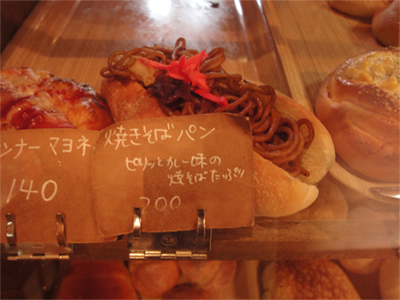 ンナーマヨネ
140
焼きそばパン
ピリッとカレー味の
焼そばたっぷり
200